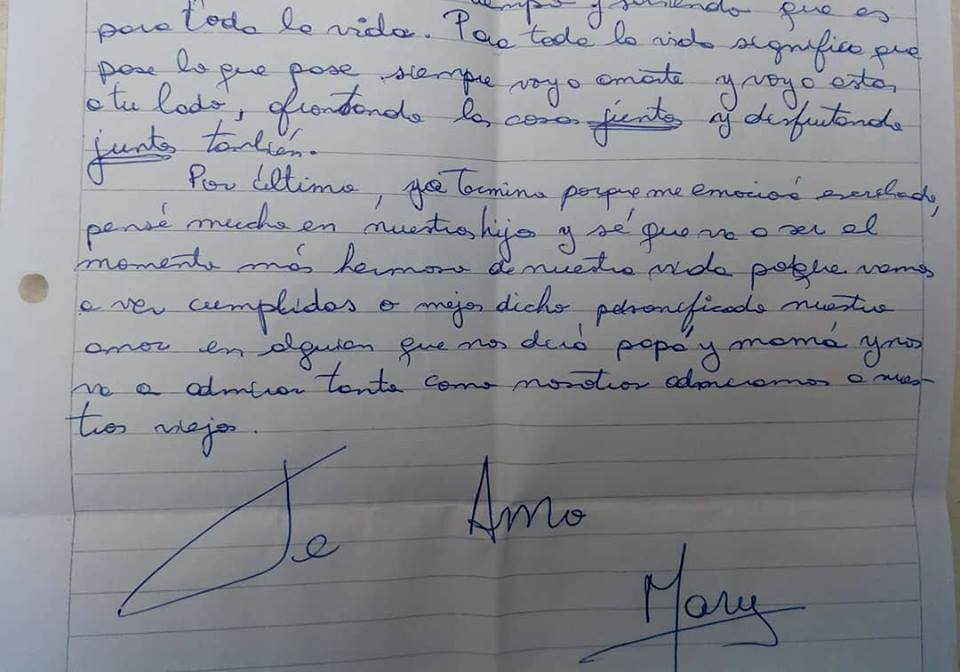 tiempo y sabiendo que es
para toda la vida. Para toda la vida significa que
pase lo que pase siempre voy a amarte y voy a estar
a tu lado, afrontando las cosas juntos y disfrutando
juntos también.
Por último, ya termino porque me emocioné escribiendo,
pensé mucho en nuestros hijos y sé que va a ser el
momento más hermoso de nuestra vida porque vamos
a ver cumplidos o mejor dicho personificado nuestro
amor en alguien que nos dirá papá y mamá y nos
va a admirar tanto como nosotros admiramos a nues-
tros viejos.
Te Amo
Mary